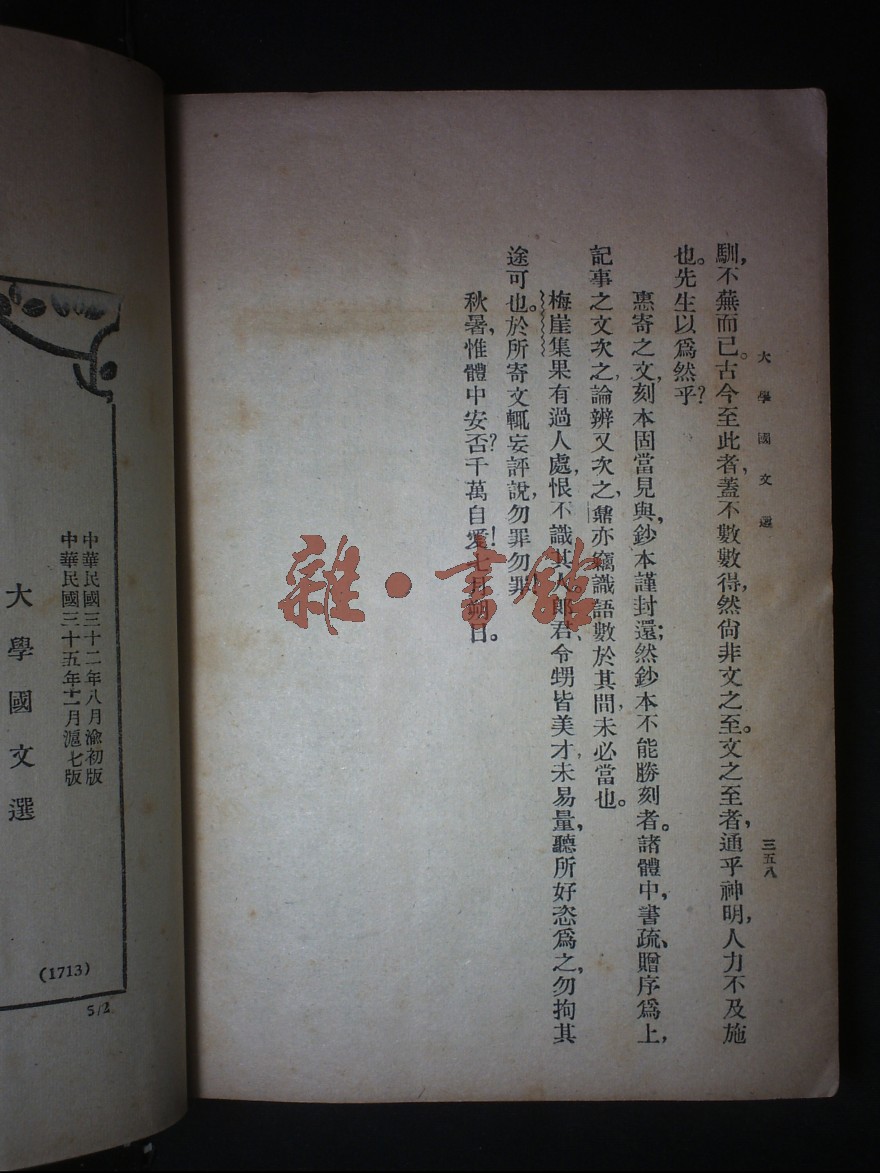 大學國文選
三五八
馴,不蕪而已。古今至此者,蓋不數數得,然尙非文之至。文之至者,通乎神明,人力不及施
也。先生以爲然乎?
惠寄之文,刻本固當見與,鈔本謹封還;然鈔本不能勝刻者。諸體中,書疏、贈序爲上,
記事之文次之,論辨又次之,鼐亦竊識語數於其間,未必當也。
梅崖集果有過人處,恨不識其人。郎君、令甥皆美才未易量,聽所好恣爲之,勿拘其
途可也。於所寄文輒妄評說,勿罪勿罪!
秋暑,惟體中安否?千萬自愛!七月朔日。
雜·書館
中華民國三十二年八月渝初版
中華民國三十五年十一月滬七版
大學國文選
(1713)
5/2